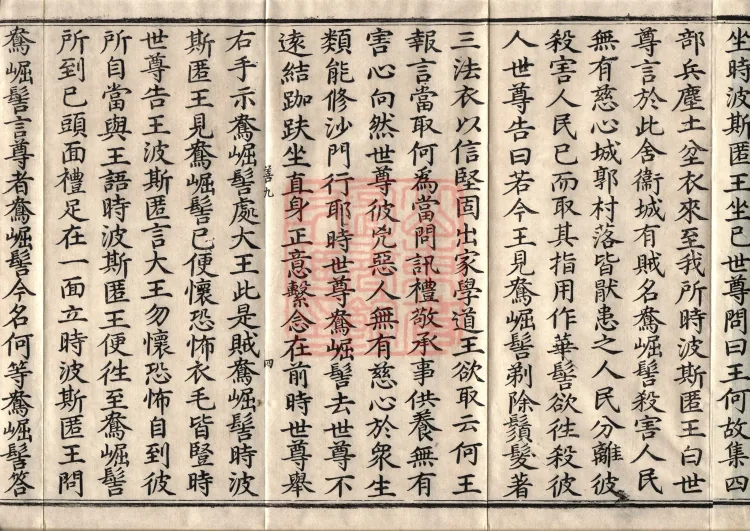 坐時波斯匿王坐已世尊問曰王何故集四
部兵塵土坌衣來至我所時波斯匿王白世
尊言於此舍衞城有賊名鴦崛髻殺害人民
無有慈心城郭村落皆厭患之人民分離彼
殺害人民已而取其指用作華髻欲往殺彼
人世尊告曰若今王見鴦崛髻剃除鬚髮著
三法衣以信堅固出家學道王欲取云何王
報言當取何爲當問訊禮敬承事供養無有
害心向然世尊彼兇惡人無有慈心於衆生
類能修沙門行耶時世尊鴦崛髻去世尊不
遠結跏趺坐直身正意繫念在前時世尊舉
善九
四
右手示鴦崛髻處大王此是賊鴦崛髻時波
斯匿王見鴦崛髻已便懷恐怖衣毛皆豎時
世尊告王波斯匿言大王勿懷恐怖自到彼
所自當與王語時波斯匿王便往至鴦崛髻
所到已頭面禮足在一面立時波斯匿王問
鴦崛髻言尊者鴦崛髻今名何等鴦崛髻答